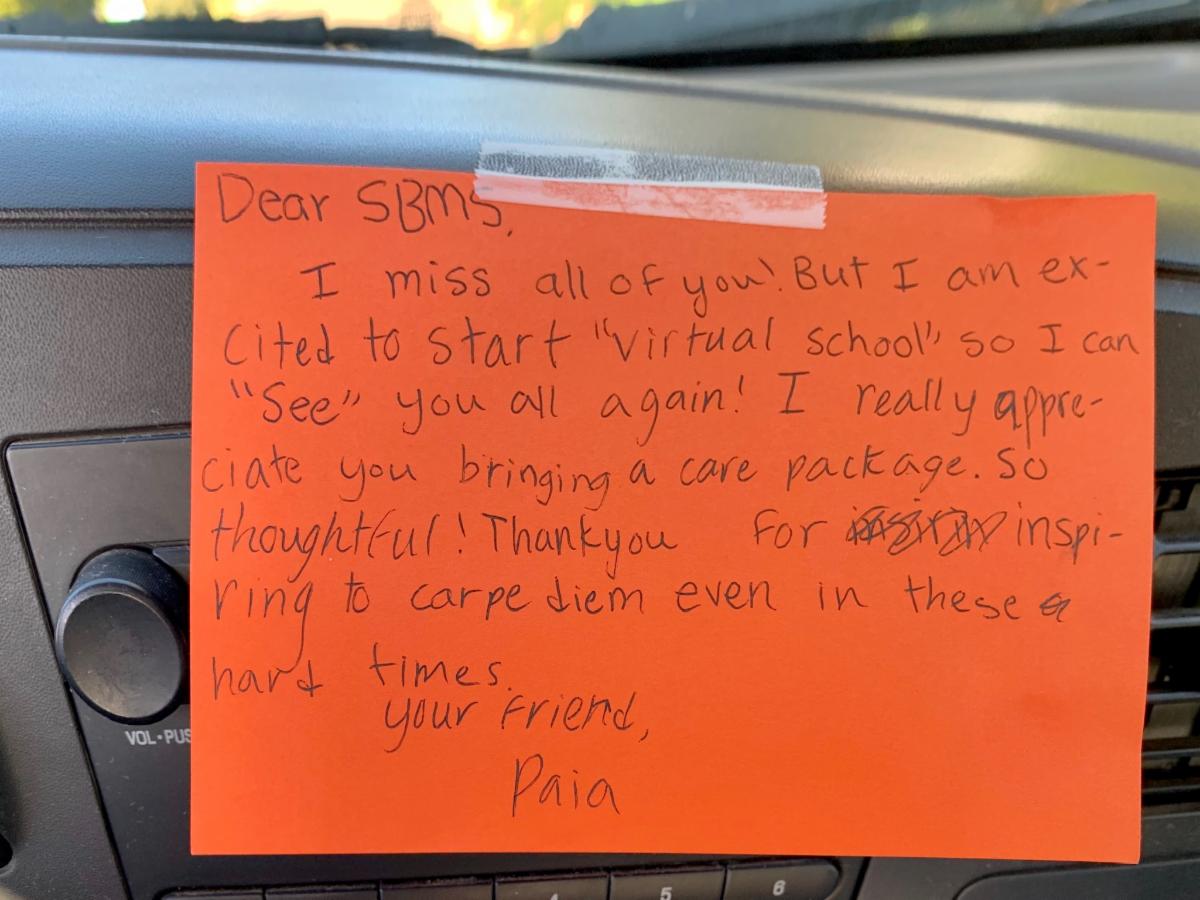 Dear SBMS,
I miss all of you! But I am ex-
cited to start "virtual school" so I can
"See" you all again! I really appre-
ciate you bringing a care package. So
thoughtful! Thankyou for inspi-
ring to carpe diem even in these
hard times.
your friend,
Paia
VOL•PUS
4
5
6